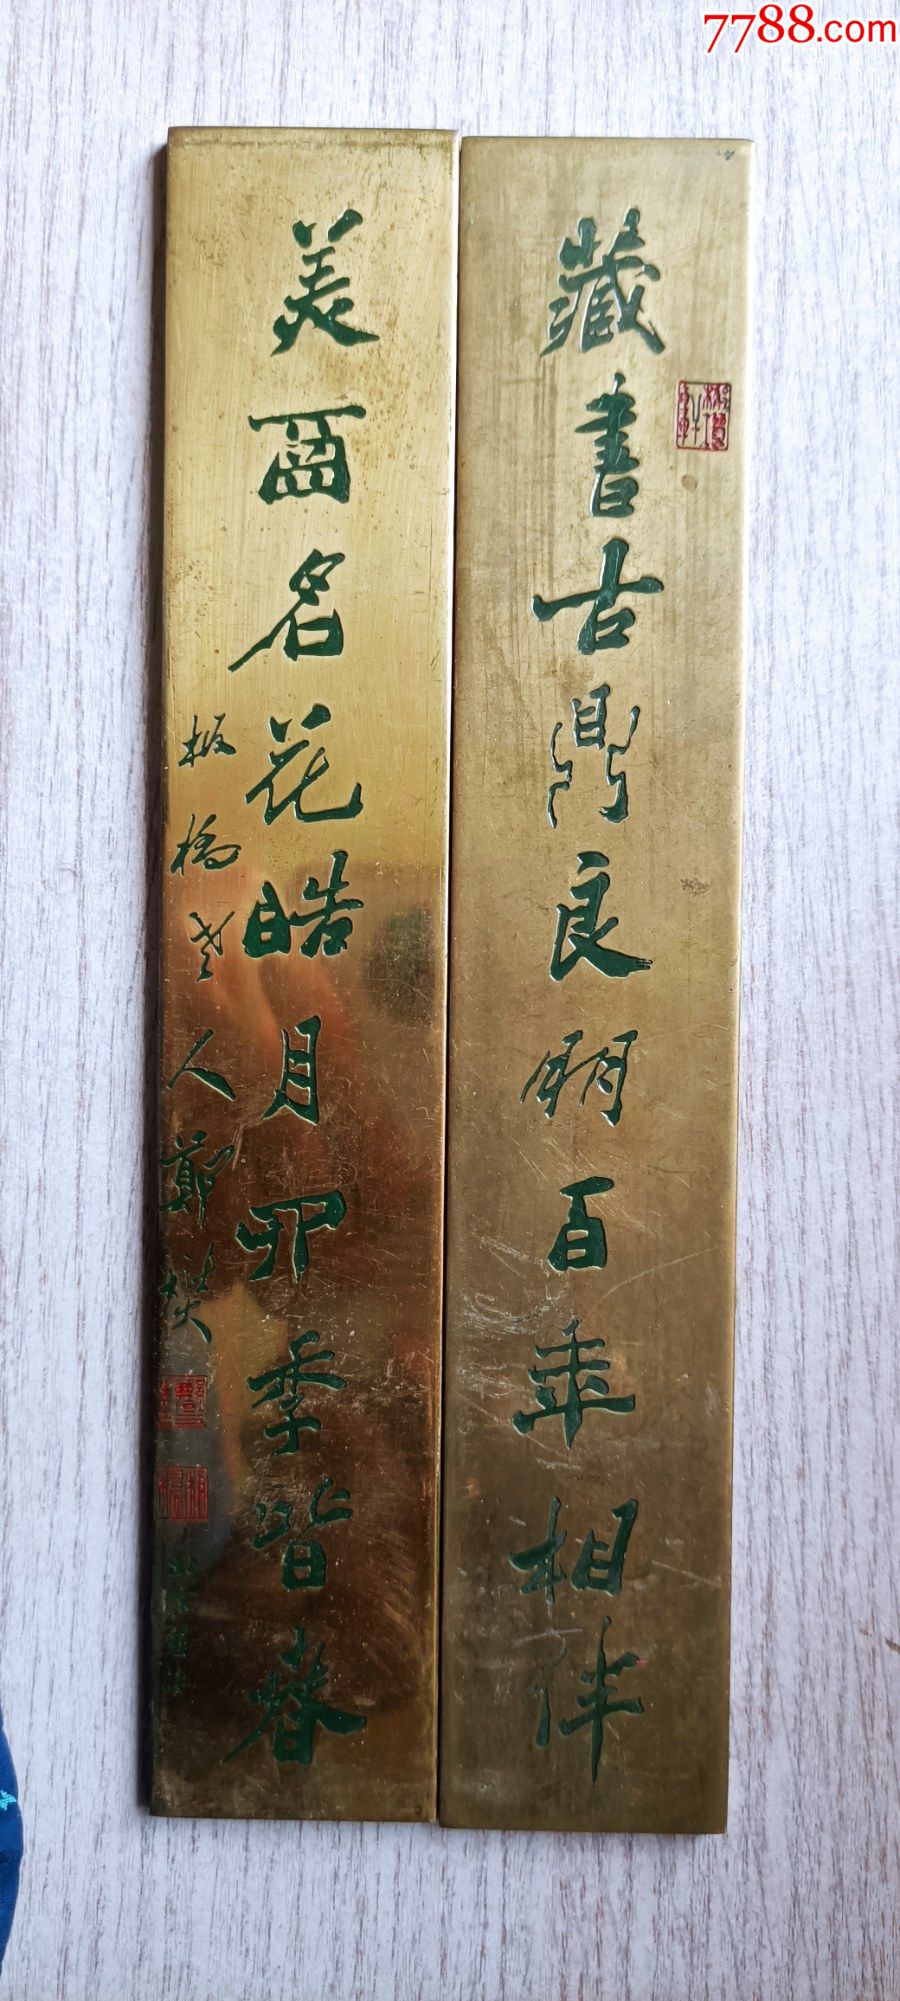 7788.com
藏書古鼎良朋百年相伴
美酉名花皓月四季皆春
板橋老人鄭燮